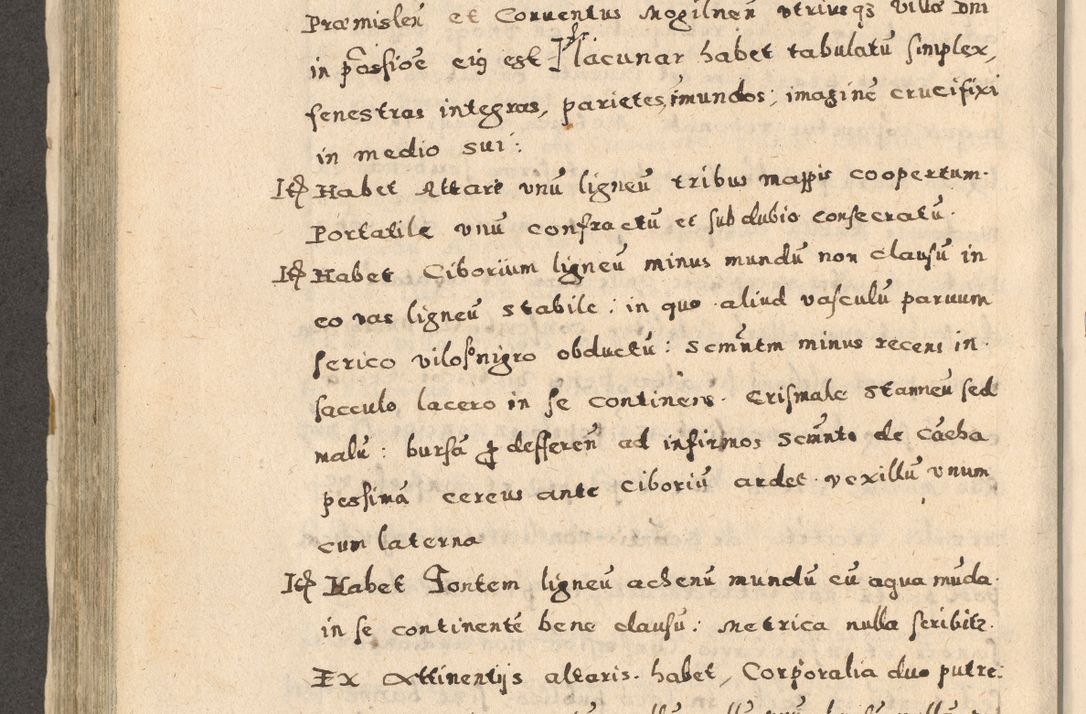 Præmislen̄ et Conventus Mogilnen̄ vtriusqꝫ villæ Dni
in p̄assioē eiꝯ est Lacunar habet tabulatū simplex,
fenestras integras, parietes, im̄undos; imaginē crucifixi
in medio sui:
Itꝫ Habet Altare vnū ligneū tribus mappis coopertum.
Portatile vnū confractū et sub dubio consecratū.
Itꝫ Habet Ciborium ligneū minus mundū non clausū in
eo vas ligneū stabile: in quo aliud vasculū paruum
serico viloso nigro obductū: Scm̄ntm minus recens in
sacculo lacero in se continens. Crismale stanneū sed
malū: bursā ꝓ defferen̄ ad infirmos Scm̄nto de Cāeha
pessimā cereus ante ciboriū ardet. vexillū vnum
cum laterna
Itꝫ Habet Fontem ligneū achenū mundū cū aqua mūda.
in se continentē bene clausū: Metrica nulla scribitꝛ.
Ex Attinentijs altaris. habet, Corporalia duo putre: